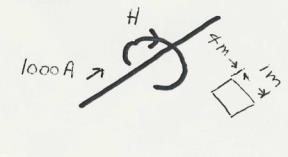 H
1000A
4m
1m